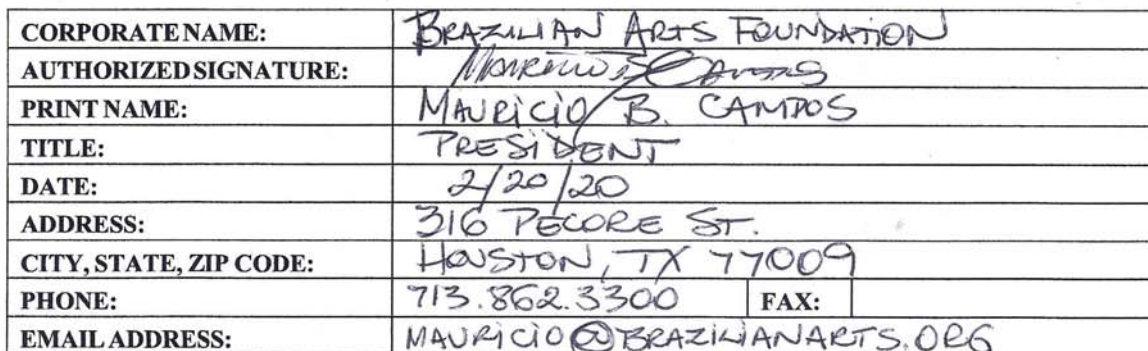 CORPORATE NAME: BRAZILIAN ARTS FOUNDATION
AUTHORIZED SIGNATURE: Mauricio B Campos
PRINT NAME: MAURICIO B. CAMPOS
TITLE: PRESIDENT
DATE: 2/20/20
ADDRESS: 316 PECORE ST.
CITY, STATE, ZIP CODE: HOUSTON, TX 77009
PHONE: 713.862.3300 FAX:
EMAIL ADDRESS: MAURICIO@BRAZILIANARTS.ORG